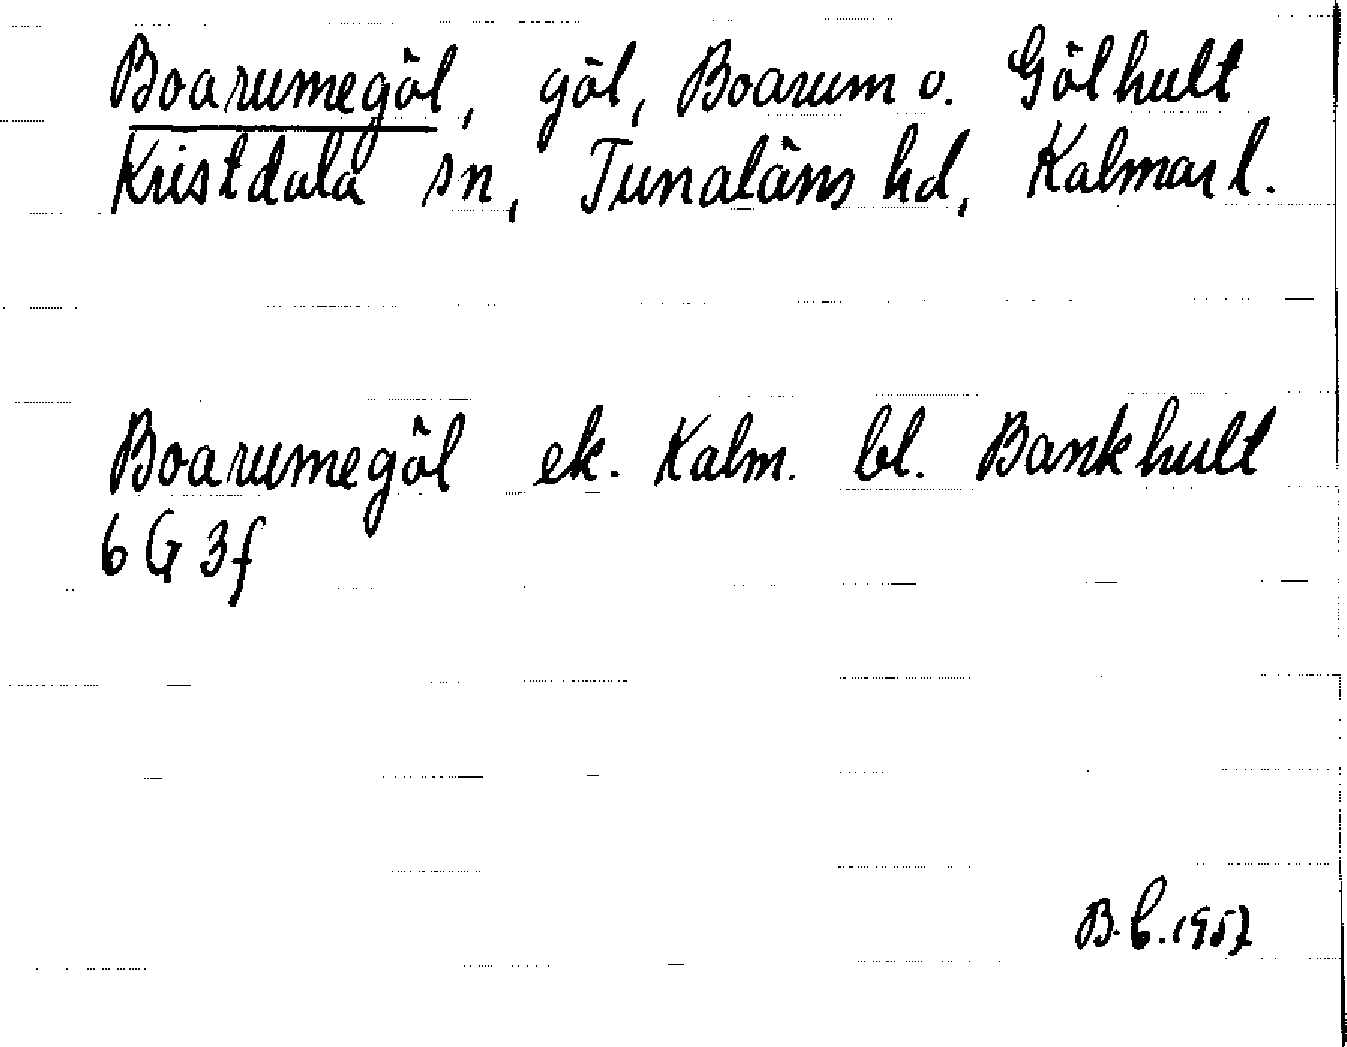 Boarumegöl, göl, Boarum o. Gölhult
Kristdala sn, Tunaläns hd, Kalmar l.
Boarumegöl ek. Kalm. bl. Bankhult
6 G 3f
B.C. 1957